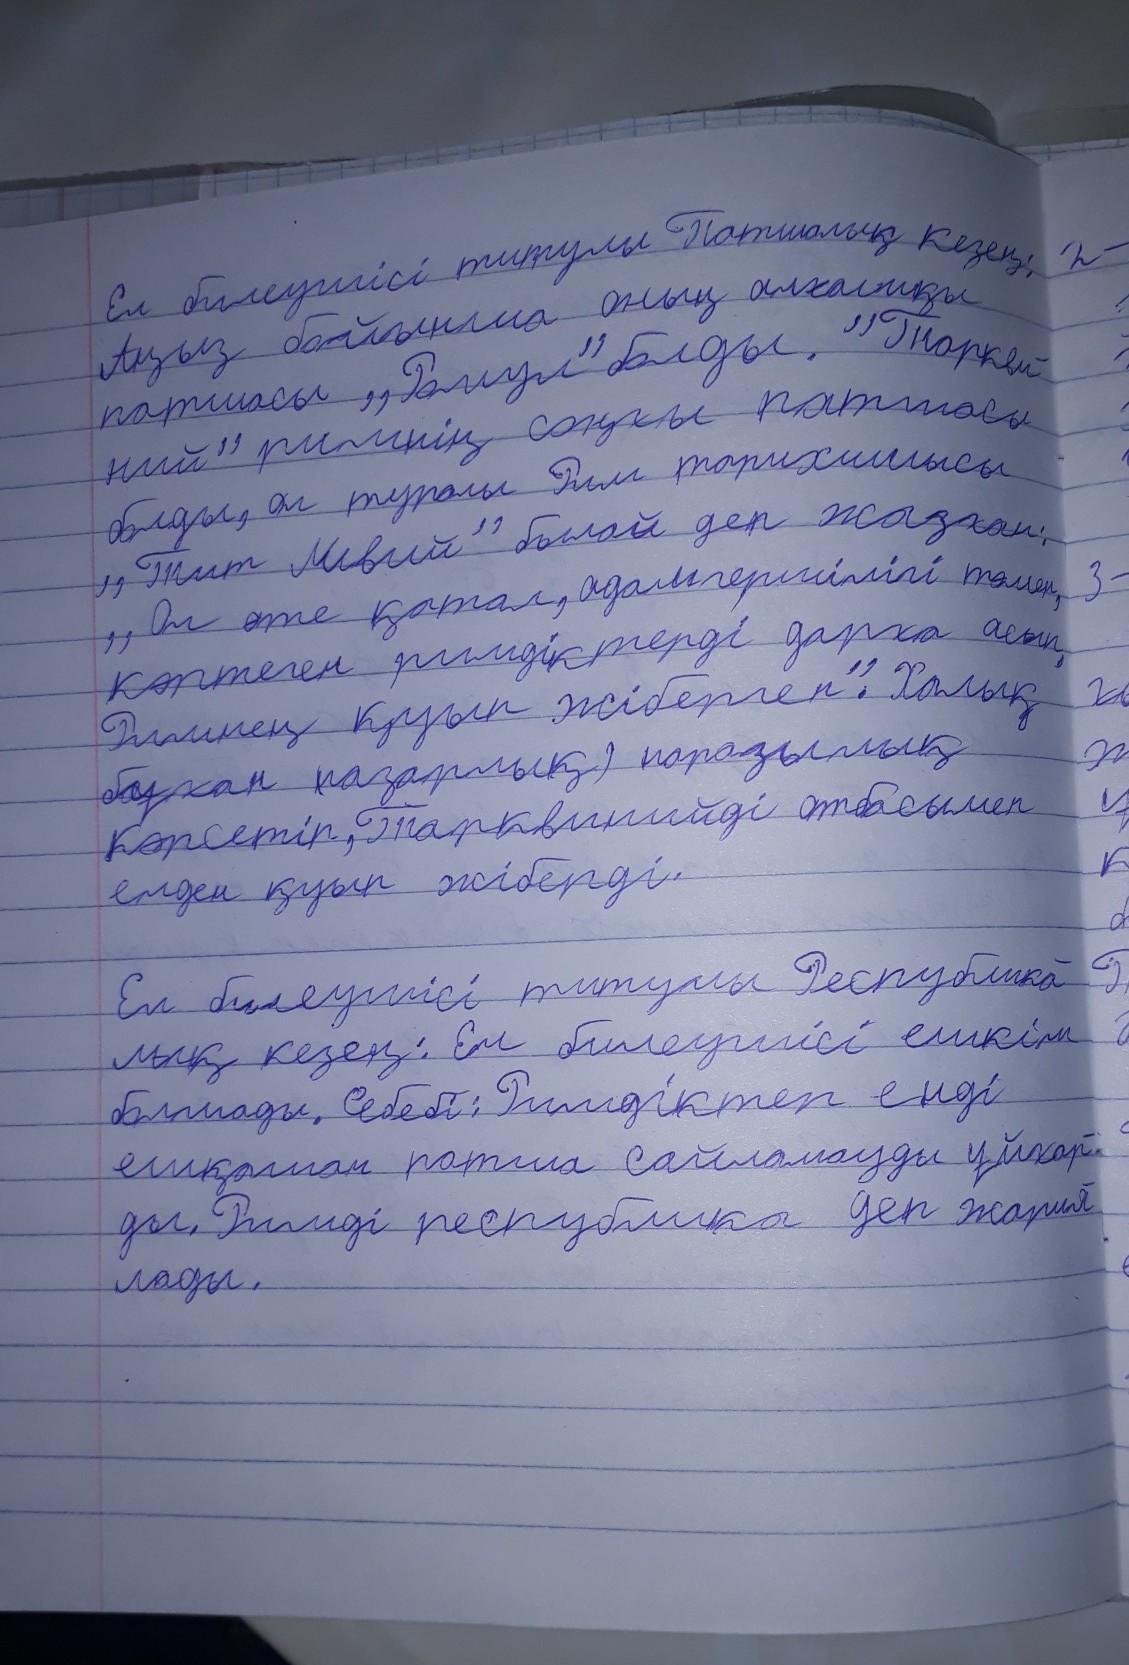 Ел билеушісі титулы Патшалық кезең:
Аңыз бойынша оның алғашқы
патшасы ,,Ромул" болды. "Таркви
ний" римнің соңғы патшасы
болды, ол туралы Рим тарихшысы
,,Тит Ливий" былай деп жазған:
,,Ол өте қатал, адамгершілігі төмен,
көптеген римдіктерді дарға асып,
Римнен қуып жіберген". Халық
бұған назарлық) наразылық
көрсетіп, Тарквинийді отбасымен
елден қуып жіберді.
Ел билеушісі титулы Республика
лық кезең: Ел билеушісі ешкім
болмады. Себебі: Римдіктер енді
ешқашан патша сайламауды ұйғар-
ды. Римді республика деп жария
лады.
2-
3-